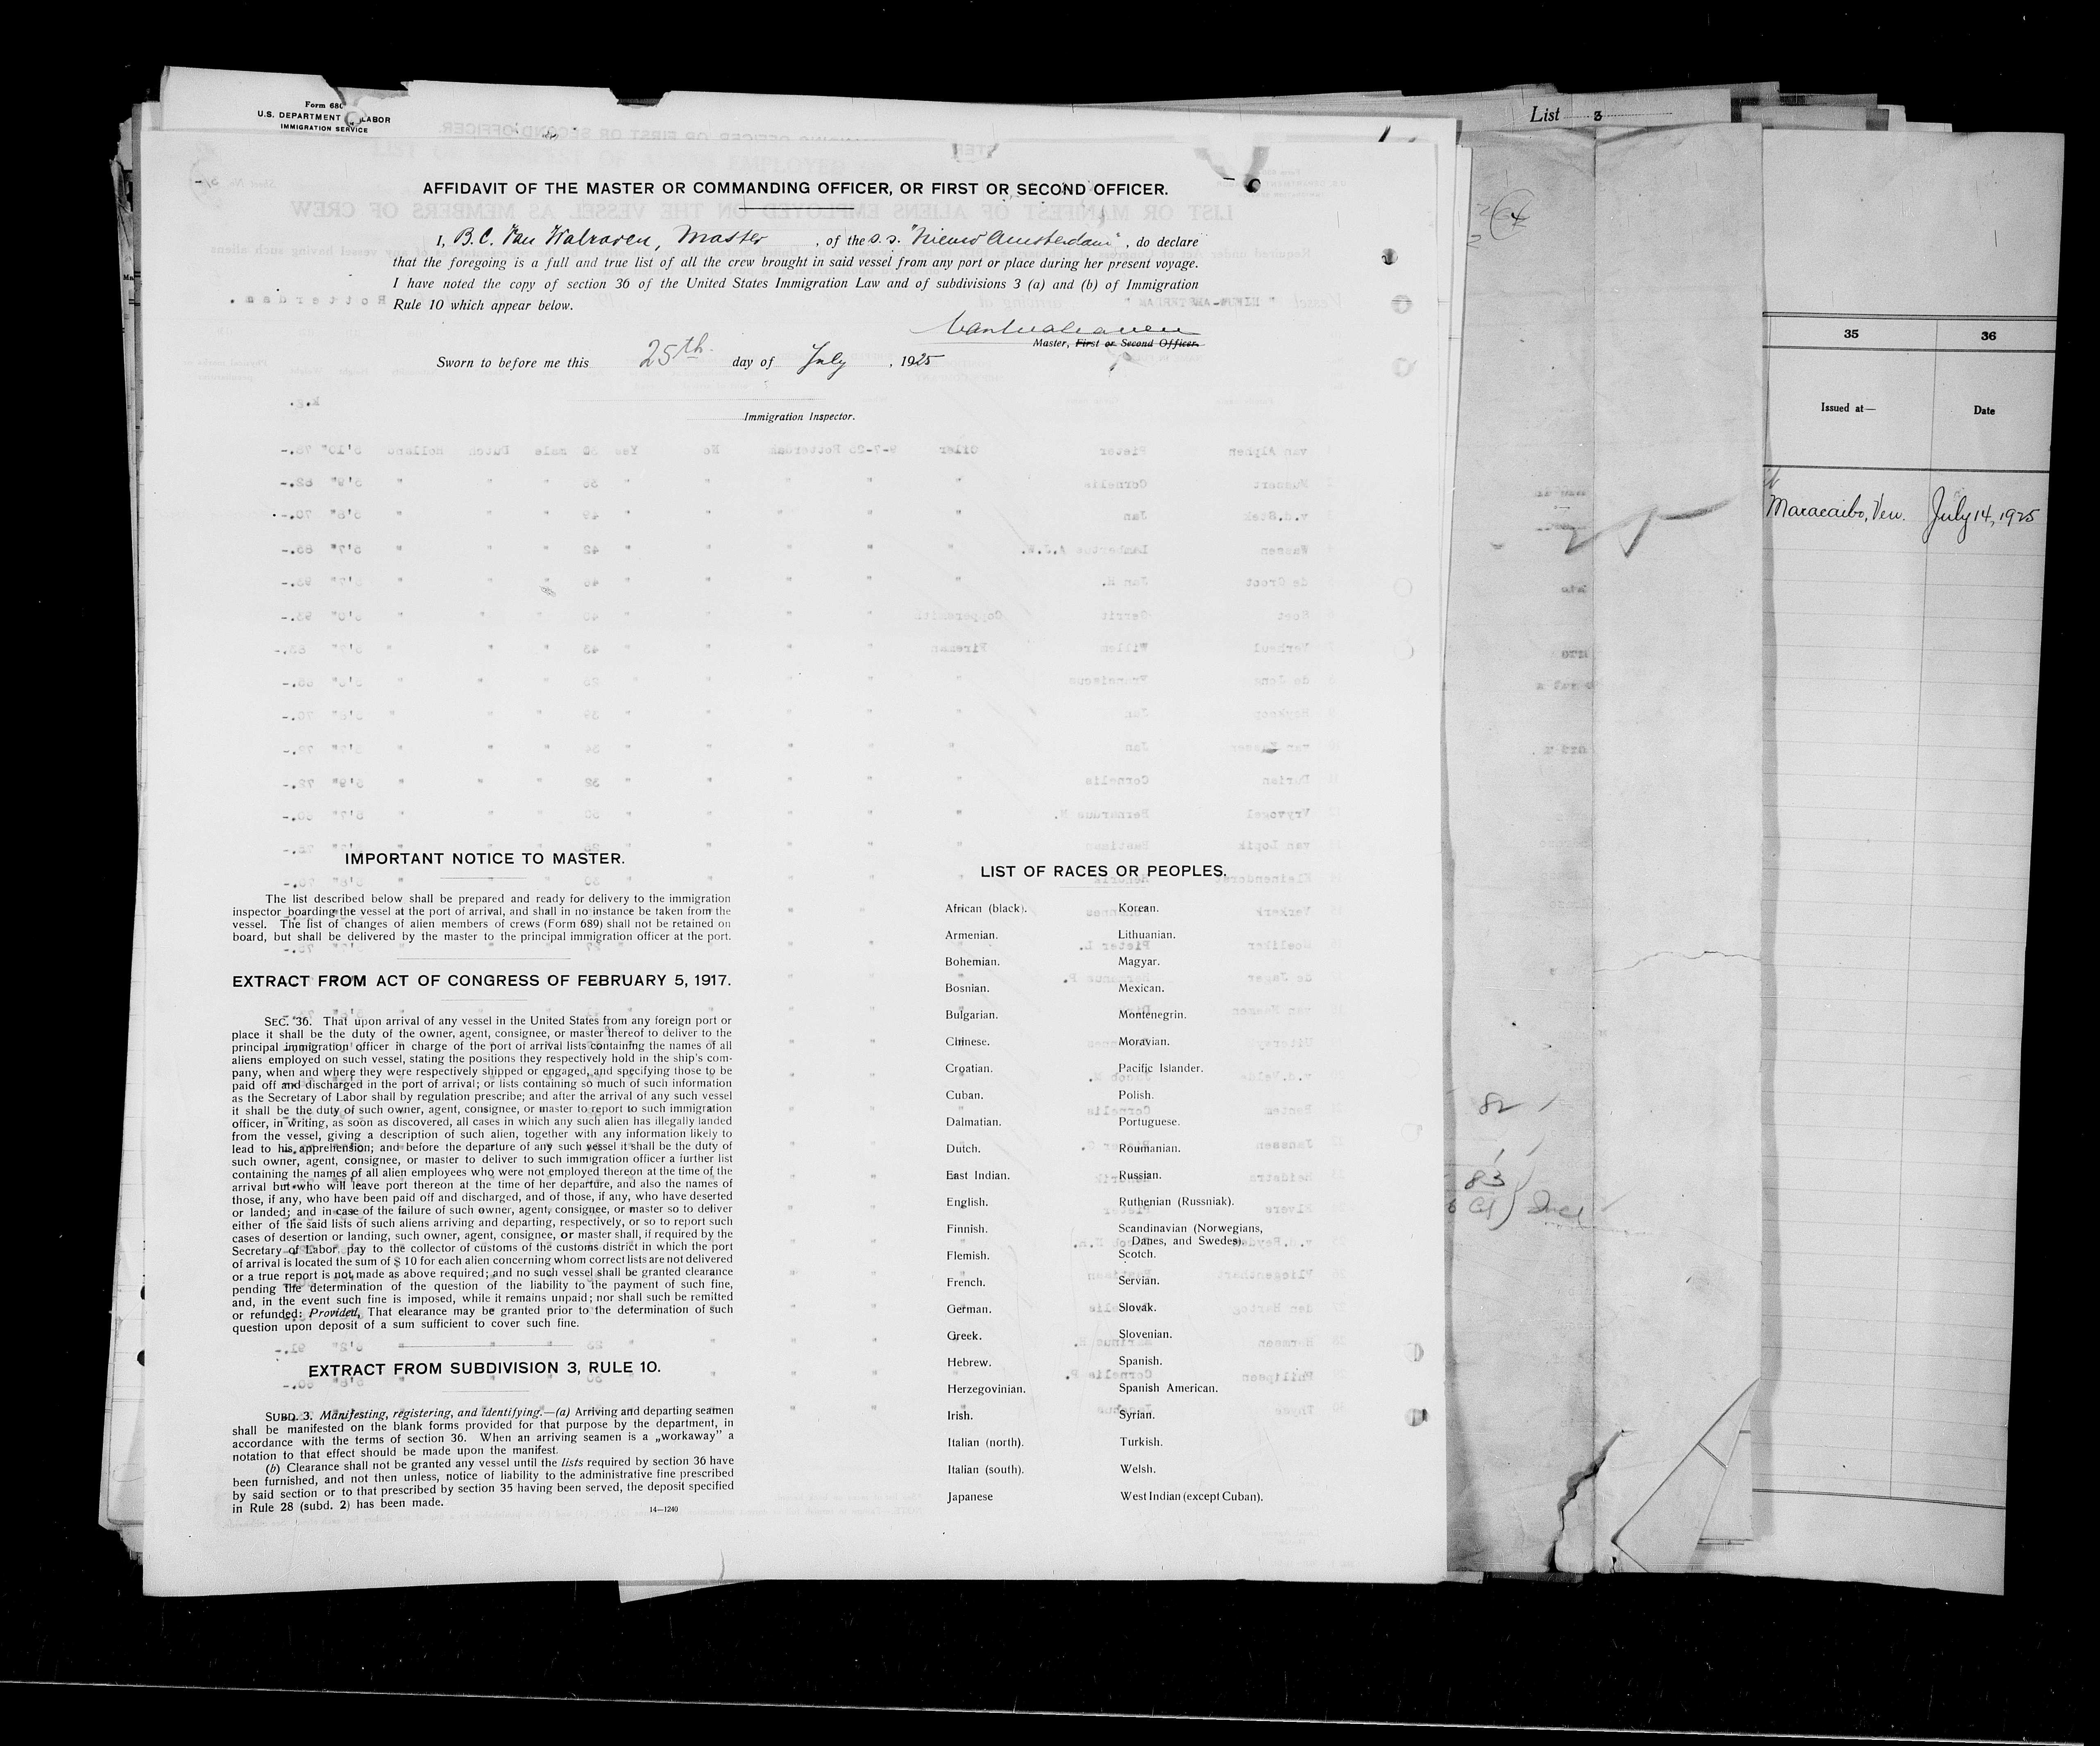 Form 680
U.S. DEPARTMENT LABOR
IMMIGRATION SERVICE
List 3
AFFIDAVIT OF THE MASTER OR COMMANDING OFFICER, OR FIRST OR SECOND OFFICER.
I, B.C. Van Walraven, Master, of the s.s. "Nieuw Amsterdam", do declare
that the foregoing is a full and true list of all the crew brought in said vessel from any port or place during her present voyage.
I have noted the copy of section 36 of the United States Immigration Law and of subdivisions 3 (a) and (b) of Immigration
Rule 10 which appear below.
Master, First or Second Officer.
Sworn to before me this 25th day of July, 1925
Immigration Inspector.
35 36
Issued at— Date
Maracaibo, Ven. July 14, 1925
IMPORTANT NOTICE TO MASTER.
The list described below shall be prepared and ready for delivery to the immigration
inspector boarding the vessel at the port of arrival, and shall in no instance be taken from the
vessel. The list of changes of alien members of crews (Form 689) shall not be retained on
board, but shall be delivered by the master to the principal immigration officer at the port.
EXTRACT FROM ACT OF CONGRESS OF FEBRUARY 5, 1917.
SEC. 36. That upon arrival of any vessel in the United States from any foreign port or
place it shall be the duty of the owner, agent, consignee, or master thereof to deliver to the
principal immigration officer in charge of the port of arrival lists containing the names of all
aliens employed on such vessel, stating the positions they respectively hold in the ship's com-
pany, when and where they were respectively shipped or engaged, and specifying those to be
paid off and discharged in the port of arrival; or lists containing so much of such information
as the Secretary of Labor shall by regulation prescribe; and after the arrival of any such vessel
it shall be the duty of such owner, agent, consignee, or master to report to such immigration
officer, in writing, as soon as discovered, all cases in which any such alien has illegally landed
from the vessel, giving a description of such alien, together with any information likely to
lead to his apprehension; and before the departure of any such vessel it shall be the duty of
such owner, agent, consignee, or master to deliver to such immigration officer a further list
containing the names of all alien employees who were not employed thereon at the time of the
arrival but who will leave port thereon at the time of her departure, and also the names of
those, if any, who have been paid off and discharged, and of those, if any, who have deserted
or landed; and in case of the failure of such owner, agent, consignee, or master so to deliver
either of the said lists of such aliens arriving and departing, respectively, or so to report such
cases of desertion or landing, such owner, agent, consignee, or master shall, if required by the
Secretary of Labor, pay to the collector of customs of the customs district in which the port
of arrival is located the sum of $ 10 for each alien concerning whom correct lists are not delivered
or a true report is not made as above required; and no such vessel shall be granted clearance
pending the determination of the question of the liability to the payment of such fine,
and, in the event such fine is imposed, while it remains unpaid; nor shall such be remitted
or refunded: Provided, That clearance may be granted prior to the determination of such
question upon deposit of a sum sufficient to cover such fine.
EXTRACT FROM SUBDIVISION 3, RULE 10.
SUBD. 3. Manifesting, registering, and identifying.—(a) Arriving and departing seamen
shall be manifested on the blank forms provided for that purpose by the department, in
accordance with the terms of section 36. When an arriving seamen is a „workaway" a
notation to that effect should be made upon the manifest.
(b) Clearance shall not be granted any vessel until the lists required by section 36 have
been furnished, and not then unless, notice of liability to the administrative fine prescribed
by said section or to that prescribed by section 35 having been served, the deposit specified
in Rule 28 (subd. 2) has been made.
14—1240
LIST OF RACES OR PEOPLES.
African (black). Korean.
Armenian. Lithuanian.
Bohemian. Magyar.
Bosnian. Mexican.
Bulgarian. Montenegrin.
Chinese. Moravian.
Croatian. Pacific Islander.
Cuban. Polish.
Dalmatian. Portuguese.
Dutch. Roumanian.
East Indian. Russian.
English. Ruthenian (Russniak).
Finnish. Scandinavian (Norwegians,
Danes, and Swedes).
Flemish. Scotch.
French. Servian.
German. Slovak.
Greek. Slovenian.
Hebrew. Spanish.
Herzegovinian. Spanish American.
Irish. Syrian.
Italian (north). Turkish.
Italian (south). Welsh.
Japanese West Indian (except Cuban).
82
83